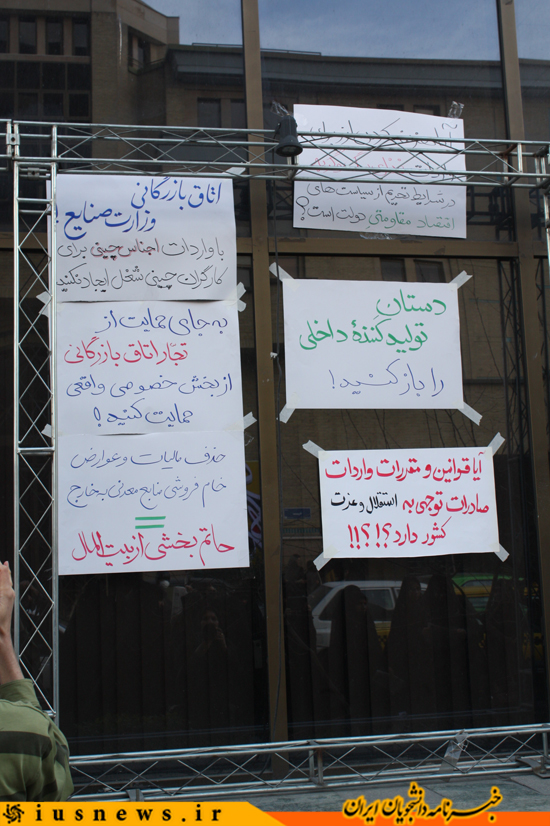 اتاق بازرگانی
وزارت صنایع !
با واردات اجناس چینی برای
کارگران چینی شغل ایجاد نکنید
به جای حمایت از
تجّار اتاق بازرگانی
از بخش خصوصی واقعی
حمایت کنید !
حذف مالیات و عوارض
خام فروشی منابع معدنی به خارج
=
حاتم بخشی از بیت المال
در شرایط تحریم از سیاست های
اقتصاد مقاومتی دولت است؟
دستان
تولید کنندهٔ داخلی
را باز کنید!
آیا قوانین و مقررات واردات
صادرات توجهی به استقلال و عزت
کشور دارد؟!؟!!
iusnews.ir
خبرنامه دانشجویان ایران